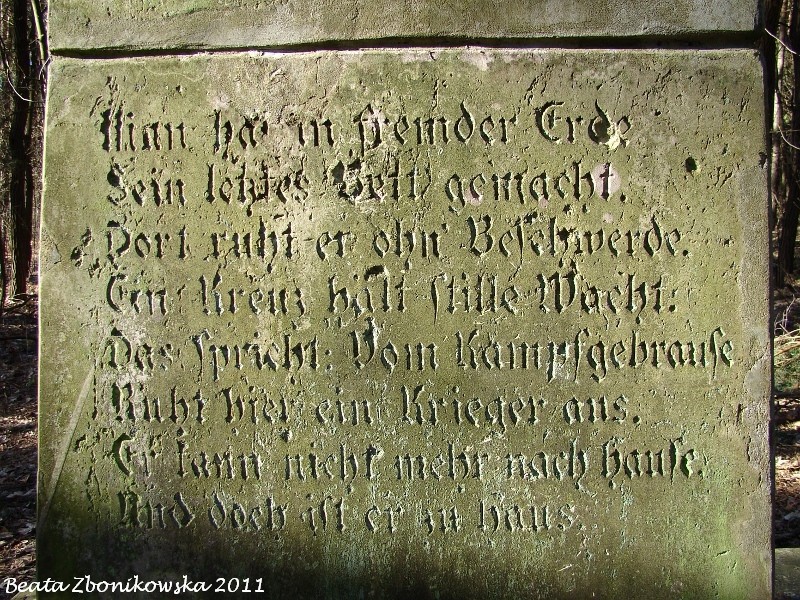 Man hat in fremder Erde
Sein letztes Bett gemacht.
Dort ruht er ohn' Beschwerde.
Ein Kreuz hält stille Wacht:
Das spricht: Vom Kampfgebrause
Ruht hier ein Krieger aus.
Er kann nicht mehr nach hause.
Und doch ist er zu haus.
Beata Zbonikowska 2011